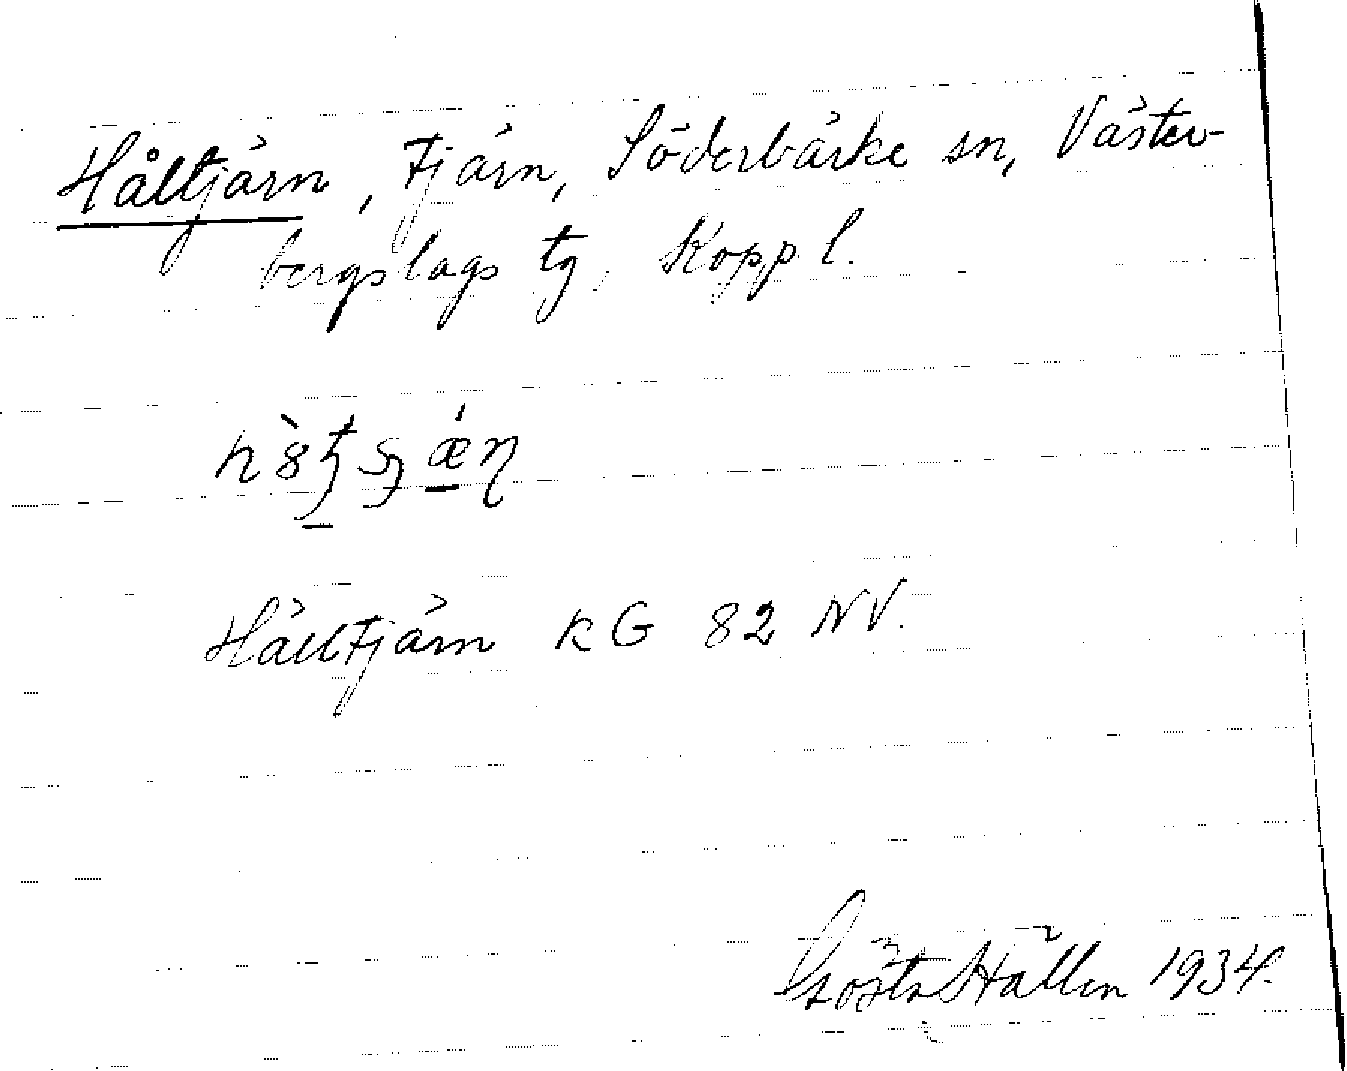 Håltjärn, tjärn, Söderbärke sn, Väster-
bergslags tg, Kopp. l.
Hålltjärn KG 82 NV.
Gösta Hallén 1934.